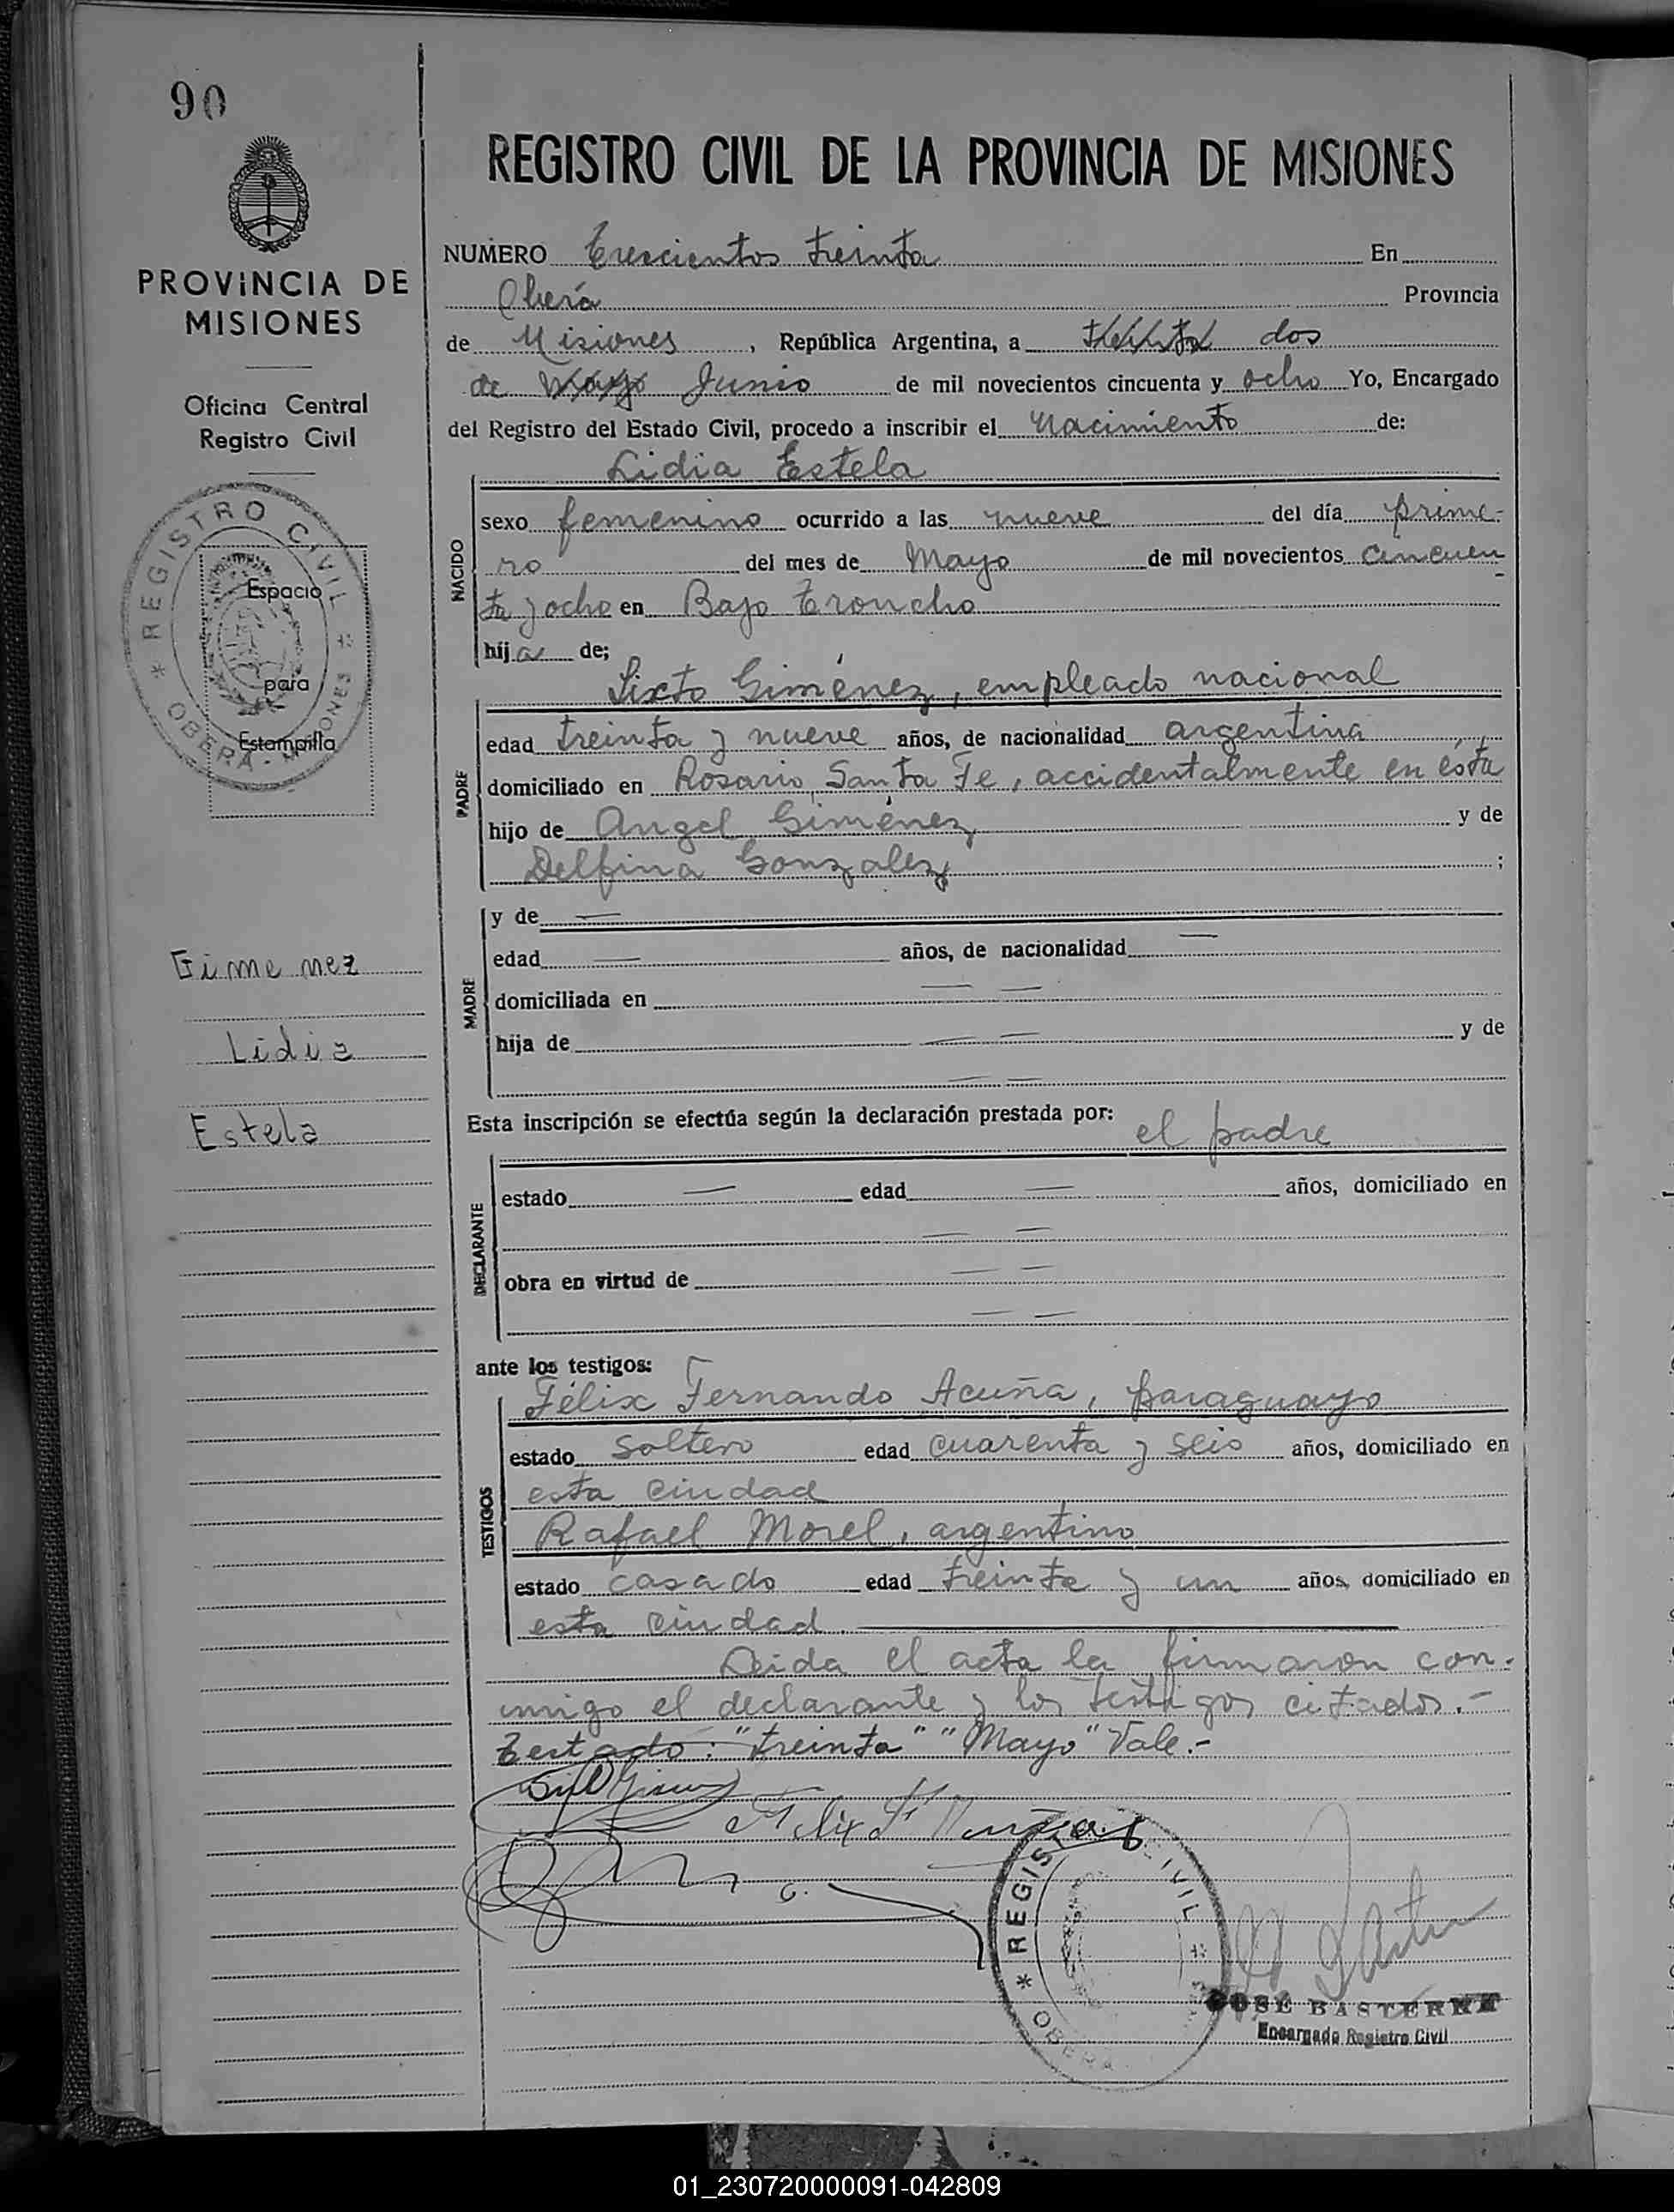 90
PROVINCIA DE
MISIONES
Oficina Central
Registro Civil
REGISTRO CIVIL
OBERÁ - MISIONES
Espacio
para
Estampilla
Gimenez
Lidia
Estela
REGISTRO CIVIL DE LA PROVINCIA DE MISIONES
NUMERO Trescientos treinta En
Oberá Provincia
de Misiones, República Argentina, a treinta dos
de Mayo Junio de mil novecientos cincuenta y ocho Yo, Encargado
del Registro del Estado Civil, procedo a inscribir el Nacimiento de:
Lidia Estela
NACIDO
sexo femenino ocurrido a las nueve del día prime-
ro del mes de Mayo de mil novecientos cincuen
ta y ocho en Bajo Troncho
hija de;
Sixto Giménez, empleado nacional
PADRE
edad treinta y nueve años, de nacionalidad argentina
domiciliado en Rosario, Santa Fe, accidentalmente en ésta
hijo de Angel Giménez y de
Delfina Gonzalez ;
MADRE
y de —
edad — años, de nacionalidad —
domiciliada en — —
hija de — — y de
— —
Esta inscripción se efectúa según la declaración prestada por: el padre
DECLARANTE
estado — edad — años, domiciliado en
— —
obra en virtud de — —
— —
ante los testigos:
Félix Fernando Acuña, paraguayo
TESTIGOS
estado soltero edad cuarenta y seis años, domiciliado en
esta ciudad
Rafael Morel, argentino
estado casado edad treinta y un años, domiciliado en
esta ciudad.
Leida el acta la firmaron con-
migo el declarante y los testigos citados.-
Testado: "treinta" "Mayo" Vale.-
Felix F
REGISTRO CIVIL
OBERÁ
JOSÉ BASTERRA
Encargado Registro Civil
01_230720000091-042809